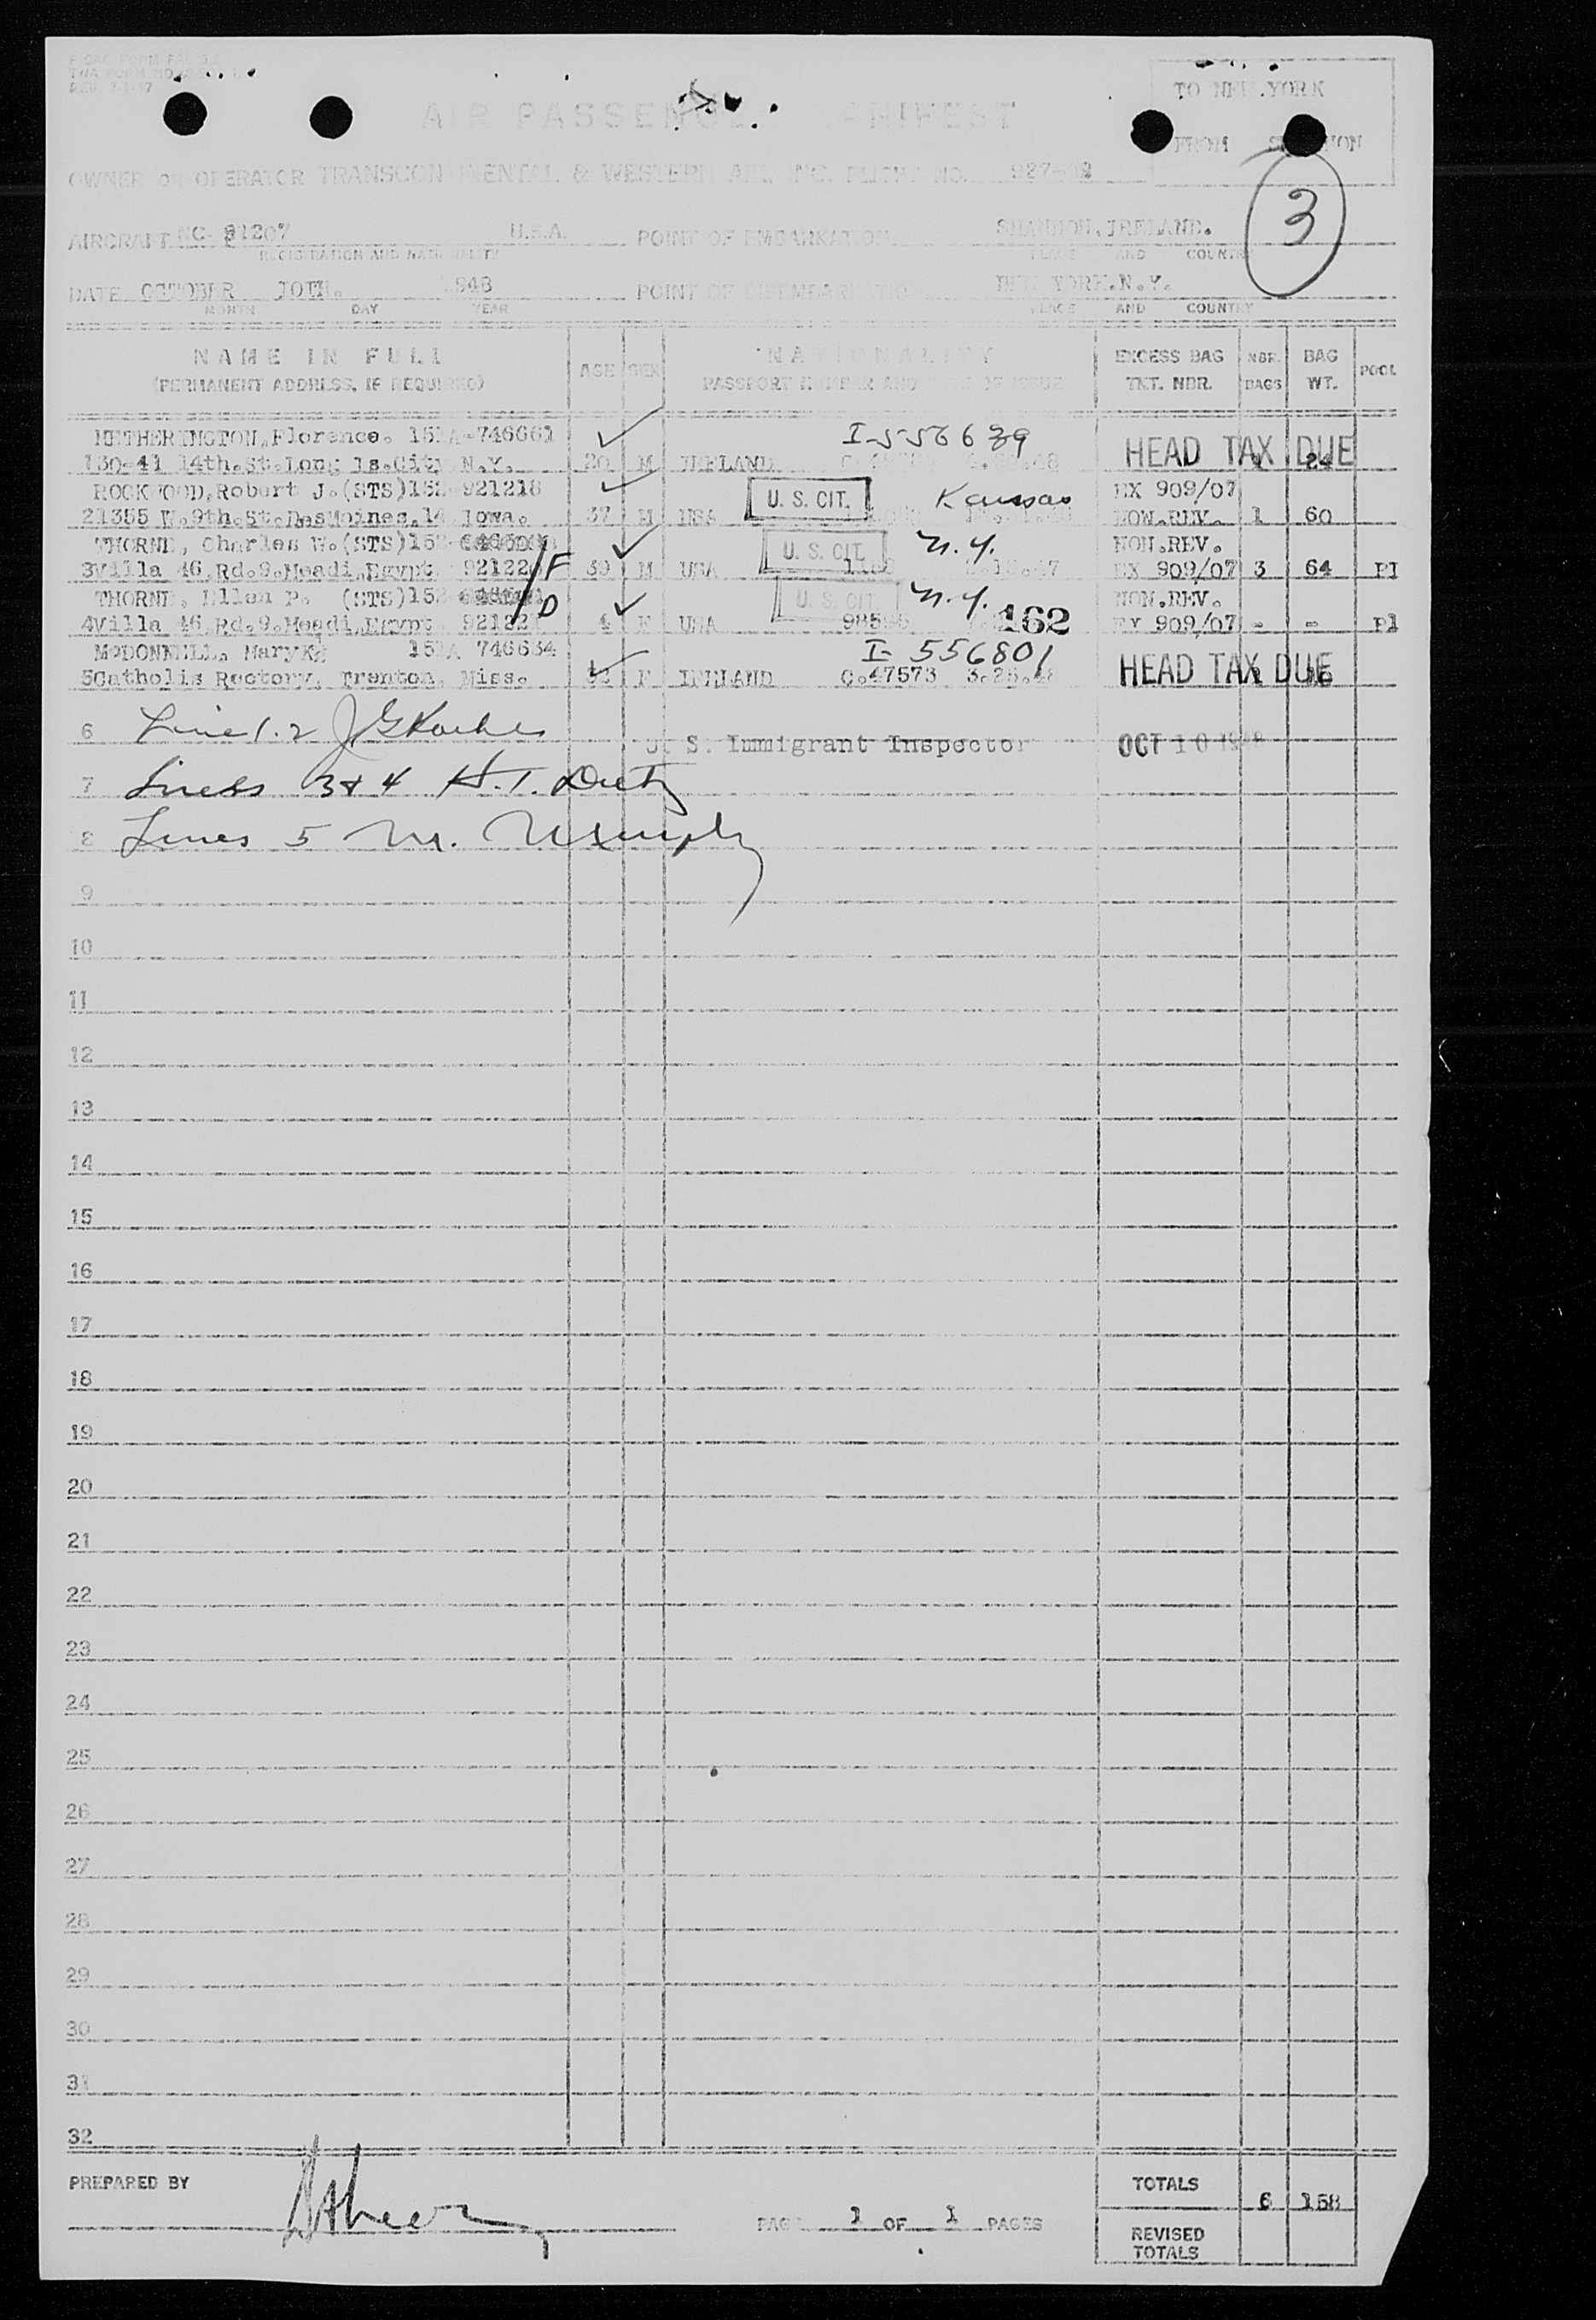 TO NEW YORK
AIR PASSENGER MANIFEST
FROM SHANNON
OWNER or OPERATOR TRANSCONTINENTAL & WESTERN AIR, INC. FLIGHT NO. 927-
3
AIRCRAFT NC- 81207 U.S.A. POINT OF EMBARKATION SHANNON, IRELAND.
REGISTRATION AND NATIONALITY PLACE AND COUNTRY
DATE OCTOBER 10TH. 1948 POINT OF DISEMBARKATION NEW YORK.N.Y.
MONTH DAY YEAR PLACE AND COUNTRY
NAME IN FULL AGE SEX NATIONALITY EXCESS BAG NBR. BAG POOL
(PERMANENT ADDRESS, IF REQUIRED) PASSPORT NUMBER AND OF ISSUE TKT. NBR. BAGS WT.
HETHERINGTON, Florence. 151A-746661 I-556639 HEAD TAX DUE
130-41 14th.St.Long Is.City N.Y. 20 M IRELAND
ROCKWOOD, Robert J.(STS)152 921218 U. S. CIT. Kansas EX 909/07
21355 W.9th.St.DesMoines,14 Iowa. 37 M USA NON.REV. 1 60
THORNE, Charles W.(STS)152 U. S. CIT. N.Y. NON.REV.
3Villa 46,Rd.9.Meadi,Egypt 921220 /F 39 M USA EX 909/07 3 64 P1
THORNE, Ellen P. (STS)152 U. S. CIT. N.Y. NON.REV.
4Villa 46,Rd.9.Meadi,Egypt 92122 /D 4 F USA 162 EX 909/07 - - P1
McDONNELL, Mary K. 151A 746634 I-556801
5Catholis Rectory, Trenton, Miss. F IRELAND C.47573 3.25.48 HEAD TAX DUE
6 Line 1.2 U. S. Immigrant Inspector OCT 10 1948
7 Lines 3 & 4 H.T.
8 Lines 5 M.
9
10
11
12
13
14
15
16
17
18
19
20
21
22
23
24
25
26
27
28
29
30
31
32
PREPARED BY TOTALS 6 158
PAGE 1 OF 1 PAGES
REVISED
TOTALS